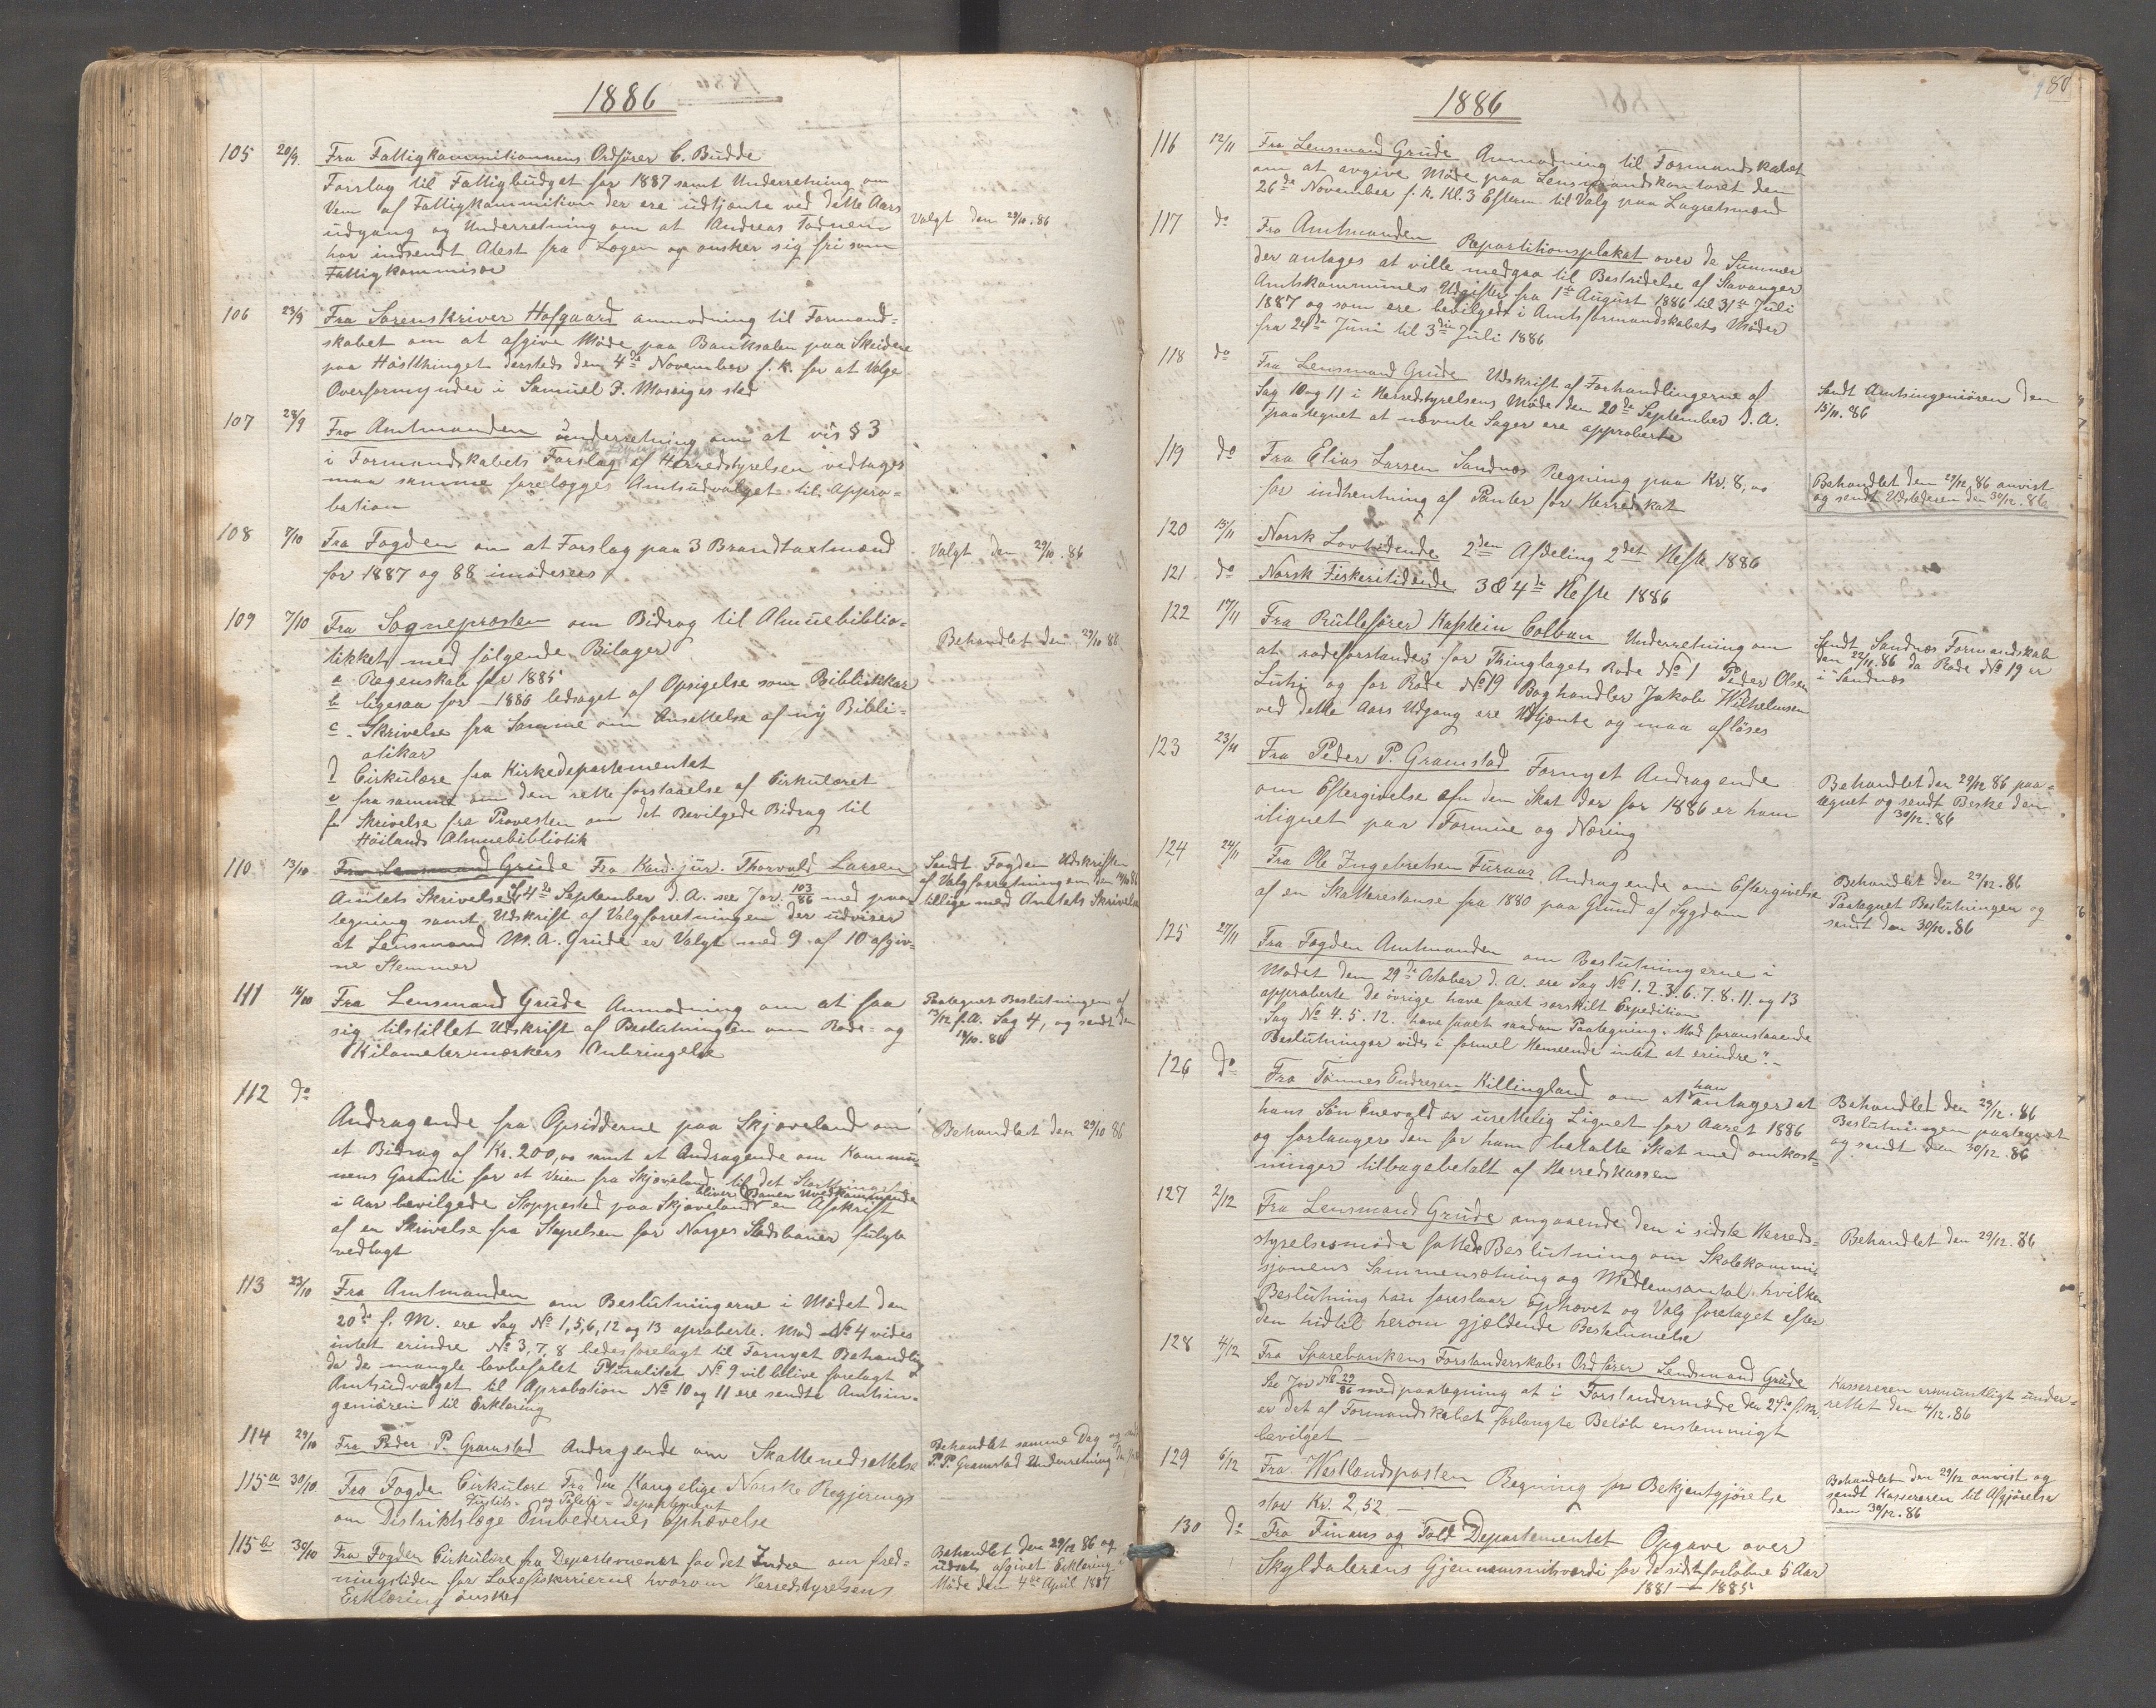 1886
105 20/9. Fra Fattigkommitionnens Ordfører C. Budde
Forslag til Fattigbudget for 1887 samt Underretning om
Vem af Fattigkommition der ere udtjente ved dette Aars
udgang og Underretning om at Andreas Tadnem
har indsendt Atest fra Lægen og ønsker sig fri som
Fattigkommisær
Valgt den 29/10.86
106 23/9 Fra Sorenskriver Hofgaard anmodning til Formand=
skabet om at afgive Møde paa Banksalen paa Skeiene
paa Høstthinget dersteds den 4de November f.k. for at Vælge
Overformynder i Samuel F. Mossiges sted
107 28/9 Fra Amtmanden Underretning om at vis § 3
i Formandskabets Forslag af Herredstyrelsen vedtages
maa samme forelægges Amtsudvalget til Appro=
bation
108 7/10 Fra Fogden om at Forslag paa 3 Brandtaxtmænd
for 1887 og 88 imødesees
Valgt den 29/10.86
109 7/10 Fra Sognepræsten om Bidrag til Almuebiblio=
tikket med følgende Bilager
a Regenskab for 1885
b ligesaa for - 1886 ledsaget af Opsigelse som Bibliotikkar
c - Skrivelse fra Samme om Ansettelse af ny Bibli=
otikar
d Cirkulære fra Kirkedepartementet
e fra samme om den rette forstaaelse af Cirkulæret
f Skrivelse fra Provesten om det Bevilgede Bidrag til
Høilands Almuebibliotik
Behandlet den 29/10 86
110 13/10 Fra Lensmand Grude Fra Kand. jur. Thorvald Larsen
Amtets Skrivelse af 4de September d.A. see Jor. 103/86 med paa=
tegning samt Udskrift af Valgforretningen der udviser
at Lensmand M.A. Grude er Valgt med 9 af 10 afgiv=
ne Stemmer
Sendt Fogden Udskriften
af Valgforretningen den 14/10 86
tillige med Amtets Skrivelse
111 16/10 Fra Lensmand Grude Anmodning om at faa
sig tilstillet Udskrift af Beslutningen om Rode= og
Kilometermærkers Anbringelse
Paategnet Beslutningen af
13/12 f.A. Sag 4, og sendt den
18/10.86
112 do
Andragende fra Opsidderne paa Skjæveland om
et Bidrag af Kr. 200,00 samt et Andragende om Kommu=
nens Garanti for at Veien fra Skjæveland til det Storthinget
bliver Banen uvedkommende
i Aar bevilgede Stoppested paa Skjæveland en Afskrift
af en Skrivelse fra Styrelsen for Norges Stadsbaner fulgte
vedlagt
Behandlet den 29/10 86
113 23/10 Fra Amtmanden om Beslutningerne i Mødet den
20de f. M. ere Sag No 1,5,6,12 og 13 aproberte. Mod No 4 vides
intet erindre No 3, 7, 8 bedes forelagt til Fornyet Behandling
da de mangle lovbefalet Pluralitet No 9 vil blive forelagt
Amtsudvalget til Aprobation No 10 og 11 ere sendte Amtsin=
geniøren til Erklæring
114 29/10 Fra Peder P. Gramstad Andragende om Skattenedsættelse
Behandlet samme Dag og
P.P. Gramstad Underretning den
115 a 30/10 Fra Fogden Cirkulære Fra den Kongelige Norske Regjerings
Justits= og Politi= Departement
om Distriktslæge Embedernes Ophævelse
115 b 30/10 Fra Fogden Cirkulære fra Departementet for det Indre om fred=
ningstiden for Laxefiskerierne hvorom Herredstyrelsens
Erklæring ønskes
Behandlet den 29/12 86 og
udsat, afgivet Erklæring i
Møde den 4de April 1887
80
1886
116 12/11 Fra Lensmand Grude Anmodning til Formandskabet
om at avgive Møde paa Lensmandskontoret den
26de November f. k. Kl. 3 Efterm. til Valg paa Lagretsmænd
117 do Fra Amtmanden Repartitionsplakat over de Summer
der antages at ville medgaa til Bestridelse af Stavanger
Amtskommunes Udgifter fra 1ste August 1886 til 31te Juli
1887 og som ere bevilgede i Amtsformandskabets Møder
fra 24de Juni til 3die Juli 1886
118 do Fra Lensmand Grude Udskrift af Forhandlingerne af
Sag 10 og 11 i Herredstyrelsens Møde den 20de September d. A.
paategnet at nævnte Sager ere approberte
Sendt Amtsingeniøren den
15/11.86
119 do Fra Elias Larsen Sandnæs Regning paa Kr. 8,00
for indhentning af Panter for Herredskat
Behandlet den 29/12.86 anvist
og sendt Udstederen den 30/12.86
120 13/11 Norsk Lovtidende 2den Afdeling 2det Hefte 1886
121 do Norsk Fiskeritidende 3 & 4de Hefte 1886
122 17/11 Fra Rullefører Kaptein Colban Underretning om
at rodeforstander for Thinglagets Rode No 1 Peder Olsen
Lutsi og for Rode No 19 Boghandler Jakob Wilhelmsen
ved dette Aars Udgang ere Udtjente og maa afløses
Sendt Sandnæs Formandskab
den 22/11.86 da Rode No 19 er
i Sandnæs
123 23/11 Fra Peder P. Gramstad Fornyet Andragende
om Eftergivelse af den Skat der for 1886 er ham
ilignet paa Formue og Næring
Behandlet den 29/12 86 paa=
tegnet og sendt Beske den
30/12.86
124 24/11 Fra Ole Ingebretsen Furaas, Andragende om Eftergivelse
af en Skatterestanse fra 1880 paa Grund af Sygdom
Behandlet den 29/12.86
Paategnet Beslutningen og
sendt den 30/12.86
125 27/11 Fra Fogden Amtmanden om Beslutningerne i
Mødet den 29de October d. A. ere Sag No 1. 2. 3. 6. 7. 8. 11. og 13
approberte de øvrige have faaet særskilt Expedition
Sag No 4. 5. 12. have faaet saadan Paategning. Mod foranstaaende
Beslutninger vides i formel Henseende intet at erindre". -
126 do Fra Tønnes Endresen Killingland om at han antager at
hans Søn Enevald er urettelig Lignet for Aaret 1886
og forlanger den for ham betalte Skat med omkost=
ninger tilbagebetalt af Herredskassen
Behandlet den 29/12.86
Beslutningen paategnet
og sendt den 30/12.86
127 2/12 Fra Lensmand Grude angaaende den i sidste Herreds=
styrelsesmøde fattede Beslutning om Skolekommi=
sjonens Sammensætning og Medlemsantal, hvilken
Beslutning han foreslaar ophævet og Valg foretaget efter
den hidtil herom gjældende Bestemmelse
Behandlet den 29/12.86
128 4/12 Fra Sparebankens Forstanderskabs Ordfører Lensmand Grude
See Jor No 29/86 med paategning at i Forstandermøde den 29de f.M.
er det af Formandskabet forlangte Beløb enstemmigt
bevilget -
Kassereren mundtligt under=
rettet den 4/12.86
129 6/12 Fra Westlandsposten Regning for Bekjentgjørelse
stor Kr. 2,52 -
Behandlet den 29/12 anvist og
sendt Kassereren til Afgjørelse
den 30/12.86
130 do Fra Finans og Told Departementet Opgave over
Skyldalerens Gjennemsnitsværdi for de sidstforløbne 5 Aar
1881 - 1885